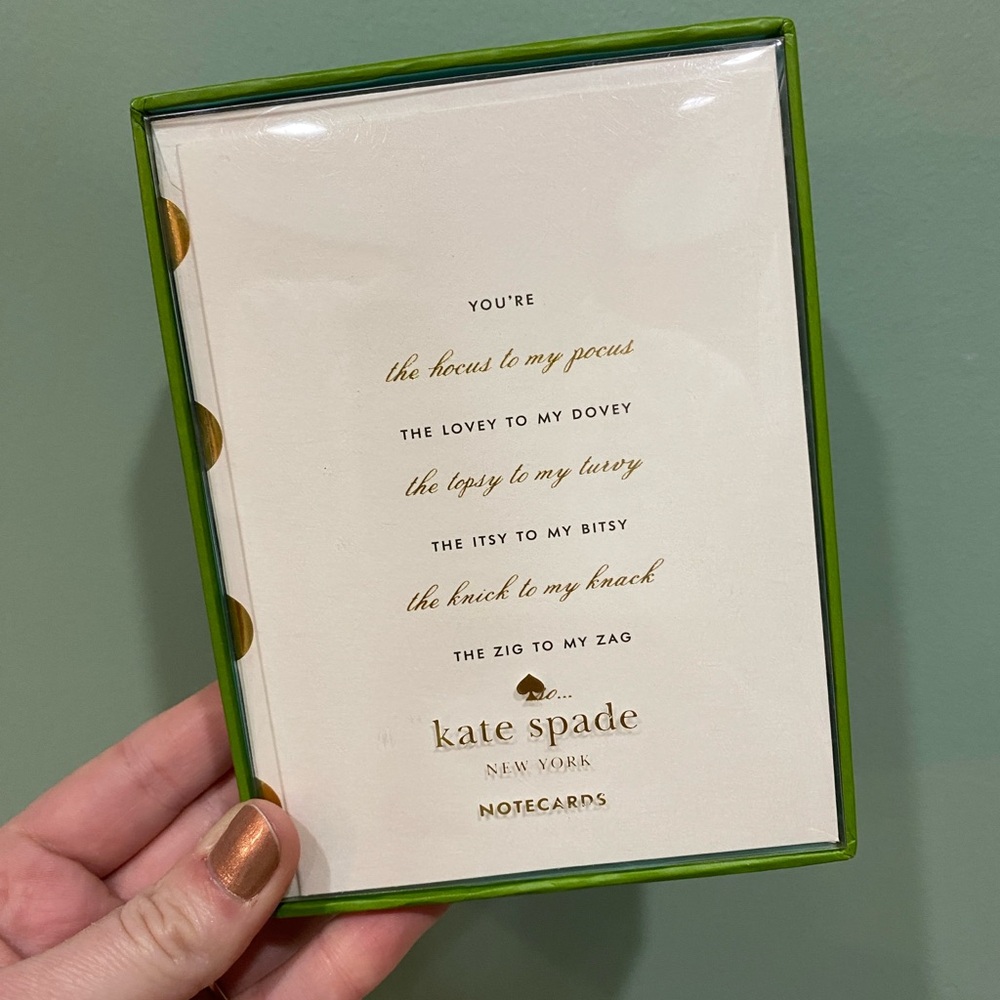 YOU'RE
the hocus to my pocus
THE LOVEY TO MY DOVEY
the topsy to my turvy
THE ITSY TO MY BITSY
the knick to my knack
THE ZIG TO MY ZAG
so...
kate spade
NEW YORK
NOTECARDS